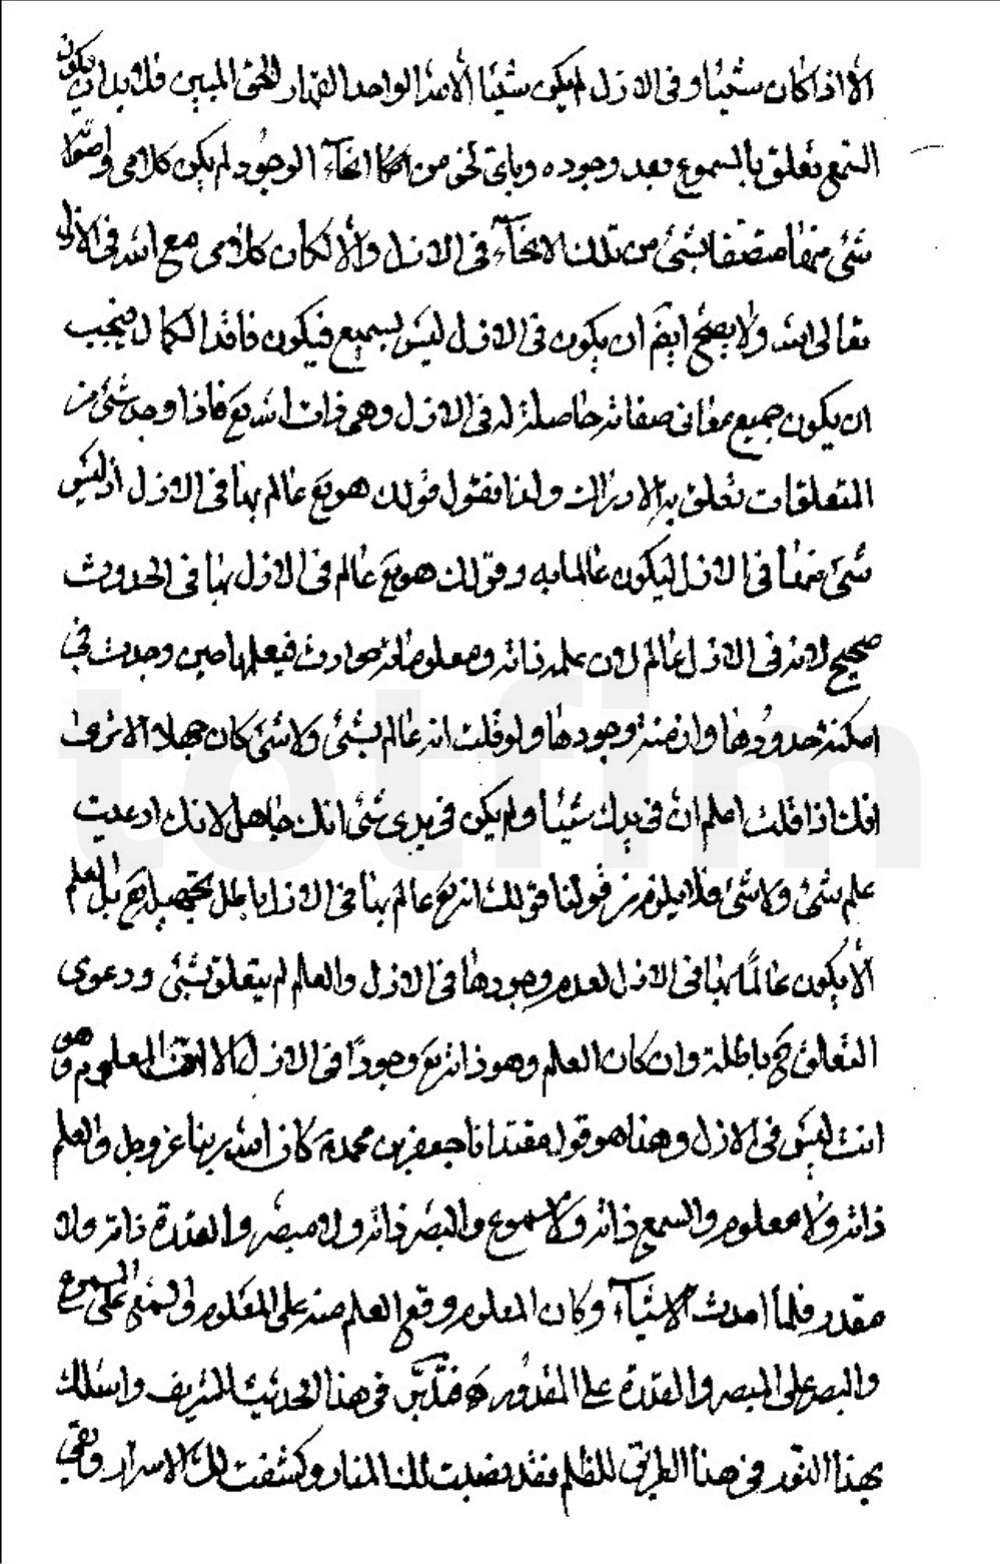 الا اذا كان شيئا وفى الازل لم يكن شيئا الا الله الواحد القهار الحق المبين فلا بد ان يكون
السمع تعلق بالمسموع بعد وجوده وباى نحو من انحاء الوجود لم يكن كلامى واصوله
شئ منها متصفا بشئ من تلك الانحاء فى الازل والا لكان كلامى مع الله فى الازل
تعالى الله ولا يصح ايضا ان يكون فى الازل ليس بسميع فيكون فاقدا لكمال فيجب
ان يكون جميع معانى صفاته حاصلة له فى الازل وهى ذات الله تع فاذا وجد شئ من
المتعلقات تعلق به الادراك ولنا فنقول قولك هو تع عالم بها فى الازل اذ ليس
شئ منها فى الازل ليكون عالما به وقولك هو تع عالم فى الازل بها فى الحدوث
صحيح لانه فى الازل عالم لان علمه ذاته ومعلوماته حوادث فيعلمها حين وجدت فى
امكنة حدودها وازمنة وجودها ولو قلت انه عالم بشئ ولا شئ كان جهلا الا ترى
انك اذا قلت اعلم ان فى يدك شيئا ولم يكن فى يدى شئ انك جاهل لانك ادعيت
علم شئ ولا شئ فلا يلزم من قولنا قولك انه تع عالم بها فى الازل باطل تجهيله تع بل العلم
الا يكون عالما بها فى الازل لعدم وجودها فى الازل والعالم لم يتعلق بشئ ودعوى
التعلق ح باطلة وان كان العلم وهو ذاته تع وجودا فى الازل المعلوم وهو
انت ليس فى الازل وهذا هو قول مقتدانا جعفر بن محمد ع كان الله ربنا عز وجل والعلم
ذاته ولا معلوم والسمع ذاته ولا مسموع والبصر ذاته ولا مبصر والقدرة ذاته ولا
مقدور فلما احدث الاشياء وكان المعلوم وقع العلم منه على المعلوم والسمع على المسموع
والبصر على المبصر والقدرة على المقدور ه فتدبر فى هذا الحديث الشريف واسلك
بهذا النور فى هذا الطريق المظلم فقد نصبت لك المنار وكشفت لك الاسرار وبقى
totfim